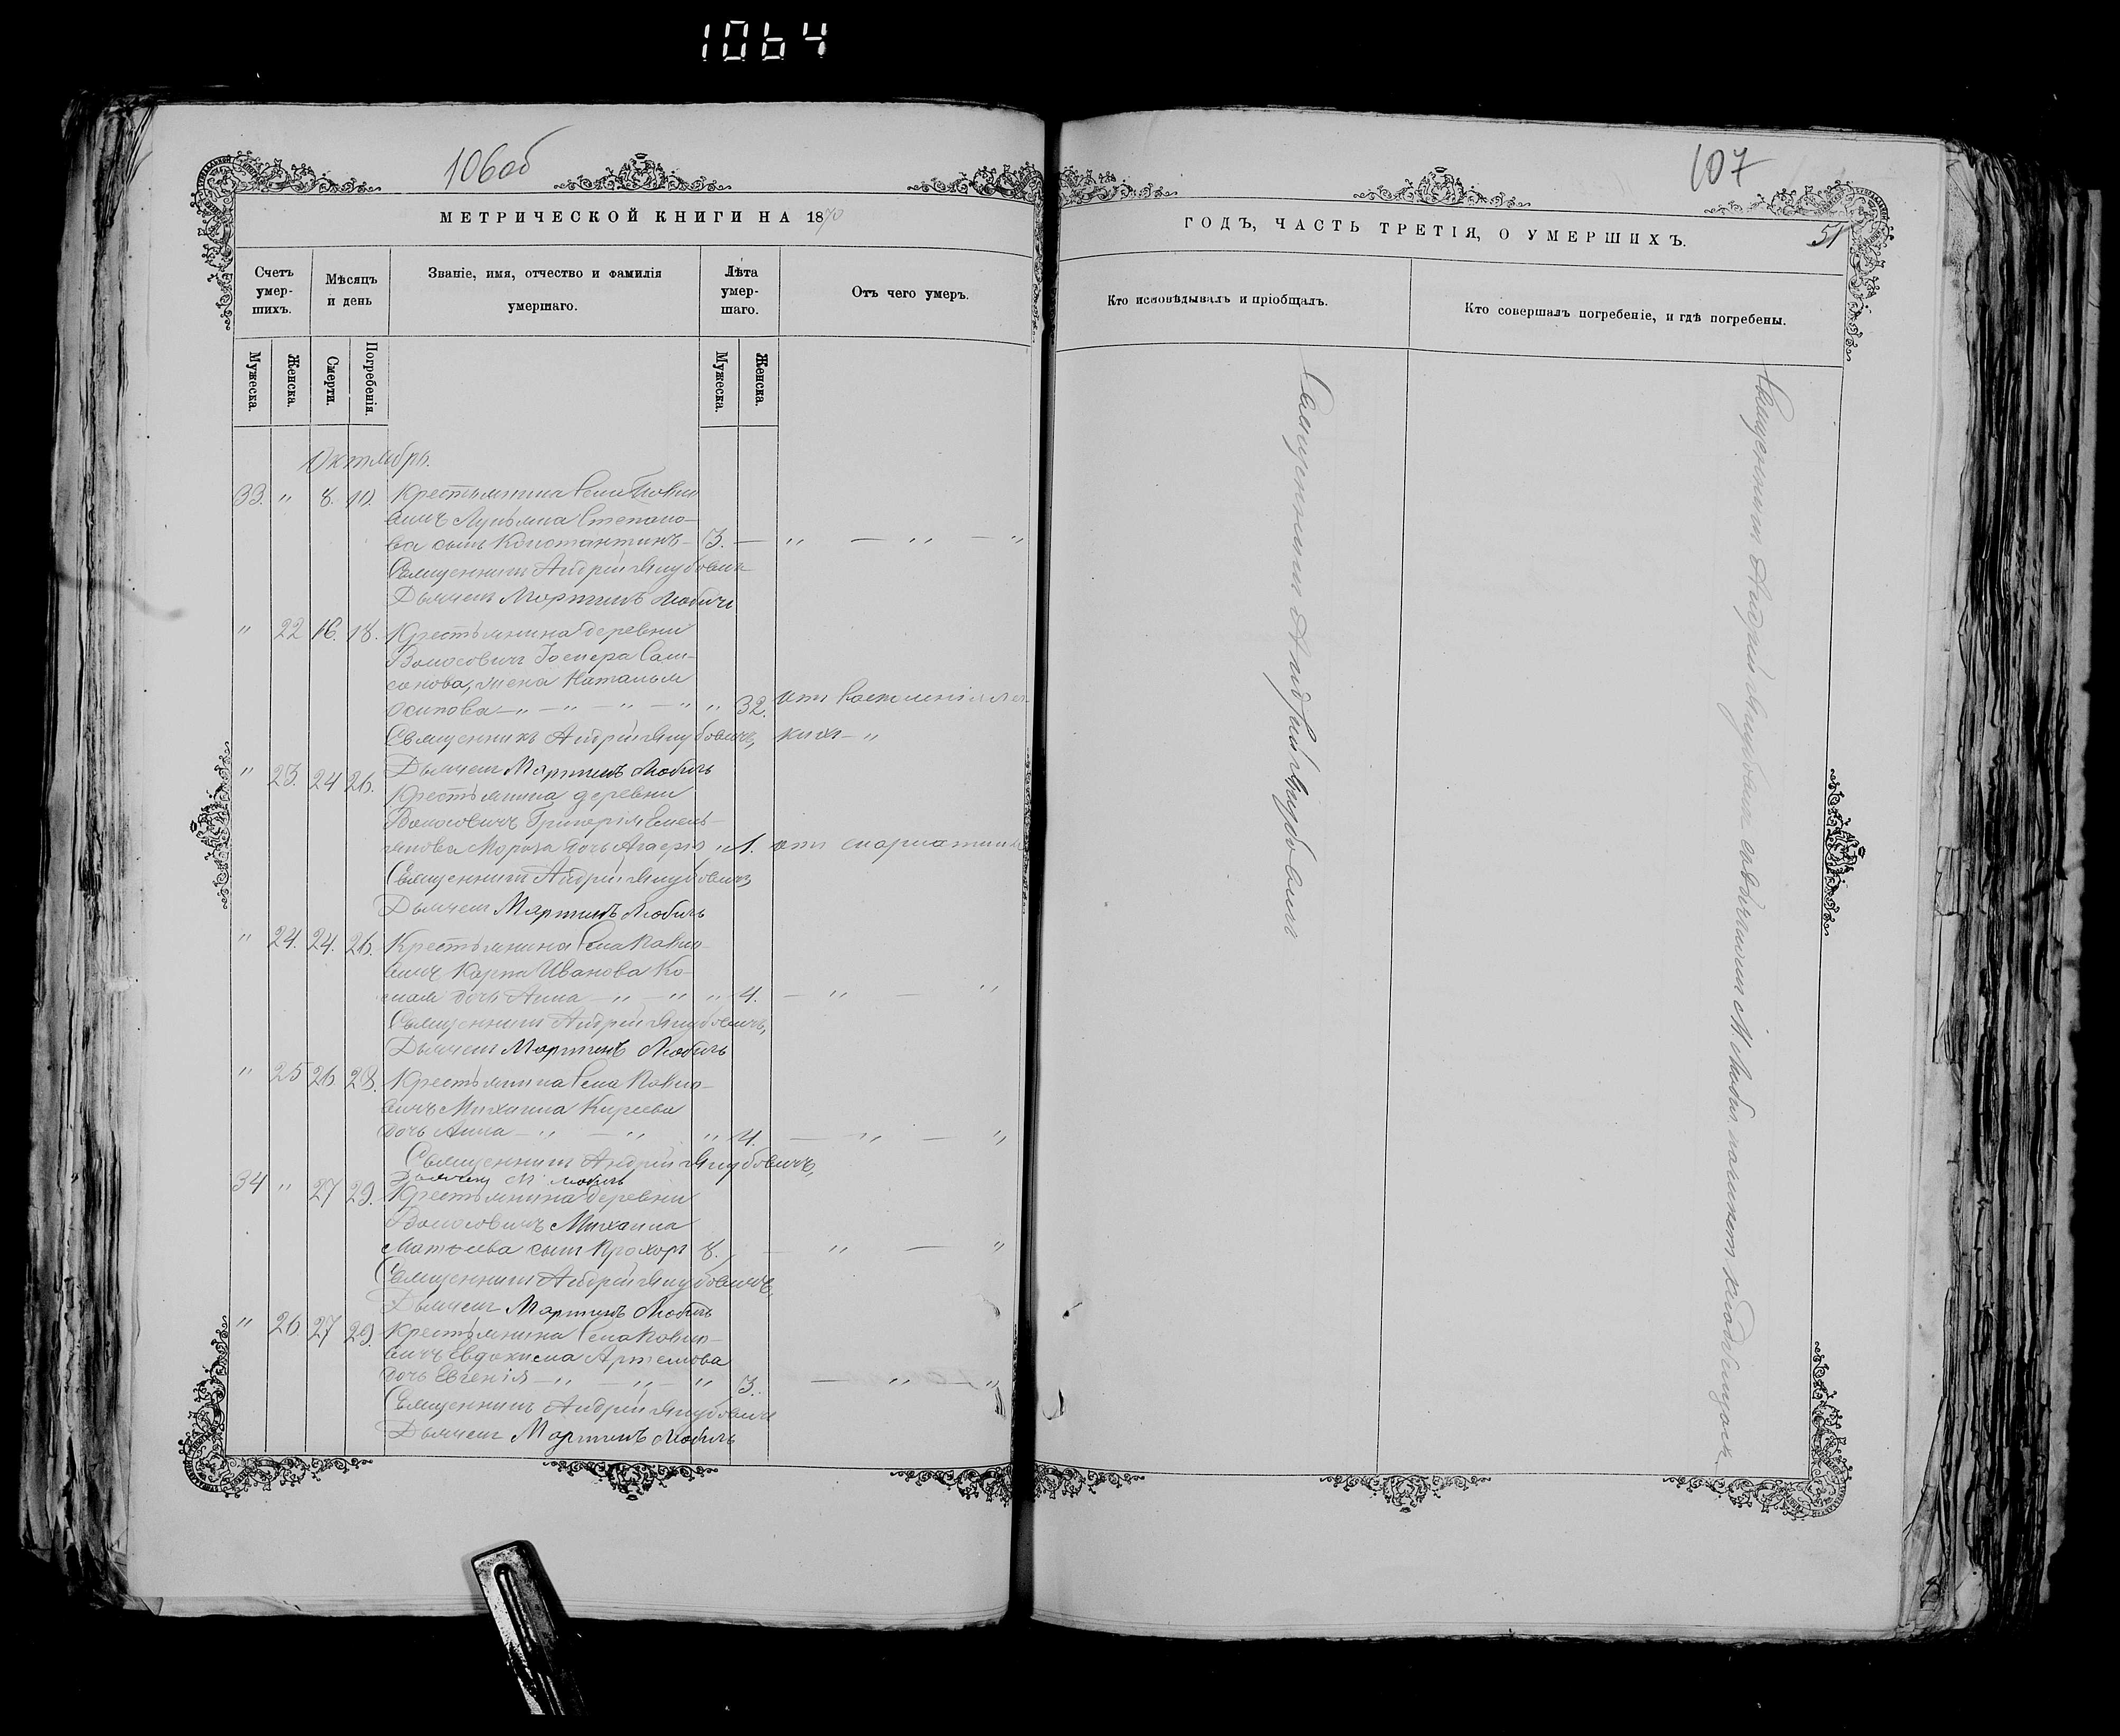 1064
106об
МЕТРИЧЕСКОЙ КНИГИ НА 1870
Счетъ умер-шихъ.
Мѣсяцъ и день
Званіе, имя, отчество и фамилія умершаго.
Лѣта умер-шаго.
Отъ чего умеръ.
Мужеска.
Женска.
Смерти.
Погребенія.
Мужеска.
Женска.
Октябрь.
33. " 8. 10. Крестьянина
Лукьяна Степано-
ва сынъ Константинъ 3. — " — " — "
Священникъ Андрей Якубовичъ
Дьячекъ Мартинъ Любичъ
" 22 16. 18. Крестьянина деревни
Волосовичъ Сам-
сонова, жена Наталья
Осипова — " — " — " — " " 32. отъ воспаленія лег-
Священникъ Андрей Якубовичъ, кихъ — "
Дьячекъ Мартинъ Любичъ
" 23. 24 26. Крестьянина деревни
Волосовичъ Григорія Емель-
янова Мороза дочь " 1. отъ скарлатины
Священникъ Андрей Якубовичъ
Дьячекъ Мартинъ Любичъ
" 24. 24. 26. Крестьянина
Карпа Иванова Ко-
дочь Анна — " — " " 4. — " — "
Священникъ Андрей Якубовичъ,
Дьячекъ Мартинъ Любичъ
" 25 26 28. Крестьянина
Михаила Киреева
дочь Анна — " — " " 4. — " — "
Священникъ Андрей Якубовичъ,
Дьячекъ М Любичъ
34 " 27 29. Крестьянина деревни
Волосовичъ Михаила
Матвеева сынъ Прохоръ 8. , — " — "
Священникъ Андрей Якубовичъ
Дьячекъ Мартинъ Любичъ
" 26. 27 29. Крестьянина
Евдокима Артемова
дочь Евгенія — " — " — " 3. — " — "
Священникъ Андрей Якубовичъ
Дьячекъ Мартинъ Любичъ
107
ГОДЪ, ЧАСТЬ ТРЕТІЯ, О УМЕРШИХЪ.
51
Кто исповѣдывалъ и пріобщалъ.
Кто совершалъ погребеніе, и гдѣ погребены.
Священникъ Андрей Якубовичъ
Священникъ Андрей Якубовичъ М. Любич. кладбищахъ